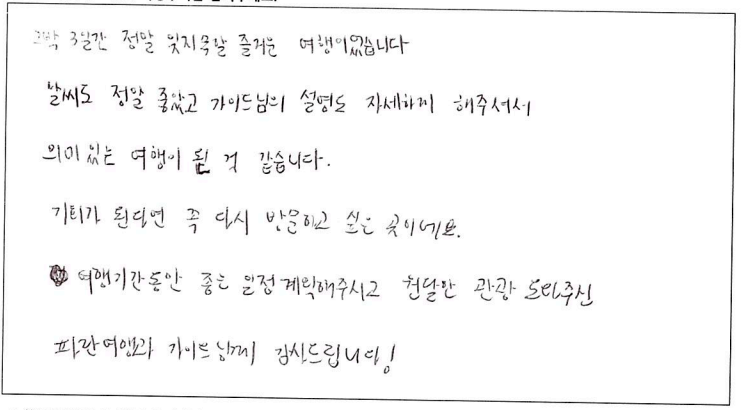 2박 3일간 정말 잊지못할 즐거운 여행이었습니다
날씨도 정말 좋았고 가이드님의 설명도 자세하게 해주셔서
의미 있는 여행이 된 것 같습니다.
기회가 된다면 꼭 다시 방문하고 싶은 곳이네요.
여행기간동안 좋은 일정계획해주시고 원달한 관광 도와주신
파란여행과 가이드님께 감사드립니다!